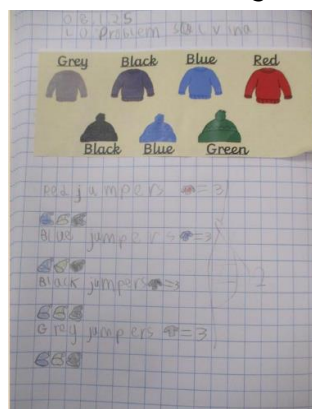 Problem
Grey Black Blue Red
Black Blue Green
Red jumpers =3
Blue jumpers =3
Black jumpers =3
Grey jumpers =3